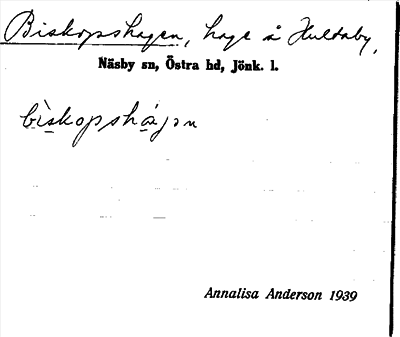 Biskopshagen, hage å Huldaby,
Näsby sn, Östra hd, Jönk. l.
bìskopshàgən
Annalisa Anderson 1939